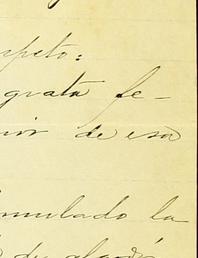 speto:
grata fe-
de esa
mulado la
de algodón